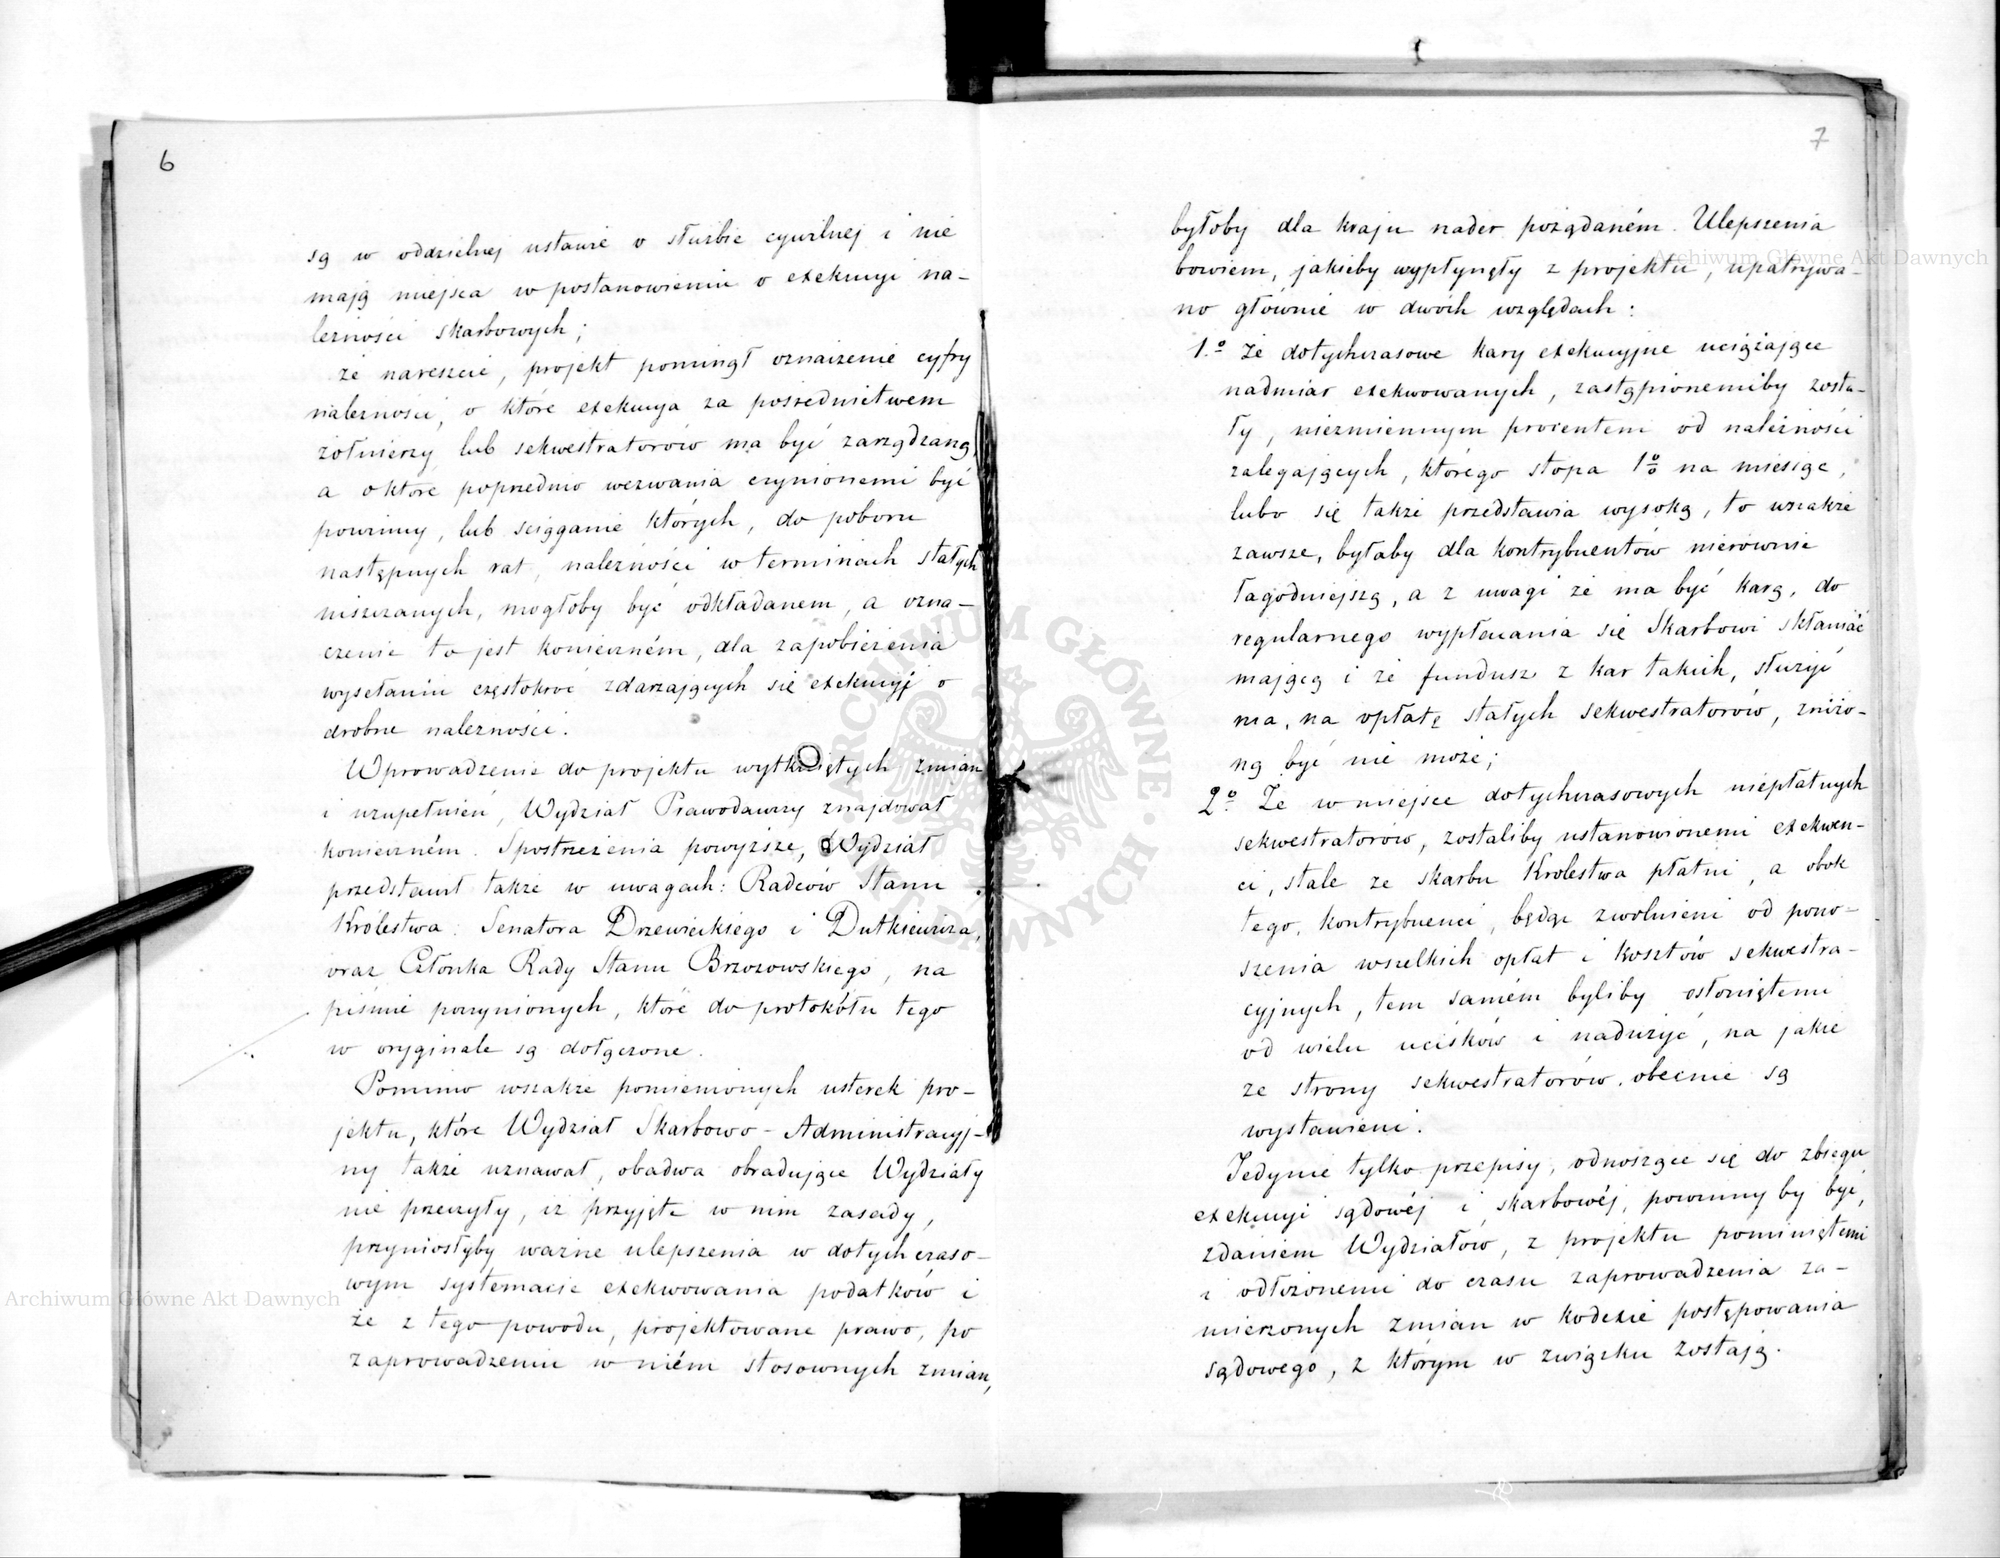 6
są w oddzielnej ustawie o służbie cywilnej i nie
mają miejsca w postanowieniu o exekucyi na-
leżności skarbowych;
że nareszcie, projekt pominął oznaczenie cyfry
należności, o które exekucya za pośrednictwem
żołnierzy lub sekwestratorów ma być zarządzaną,
a o które poprzednio wezwania czynionemi być
powinny, lub ściąganie których, do poboru
następnych rat, należności w terminach stałych
uiszczanych, mogłoby być odkładanem, a ozna-
czenie to jest konieczném, dla zapobieżenia
wysełaniu częstokroć zdarzających się exekucyj o
drobne należności.
Wprowadzenie do projektu wytkniętych zmian
i uzupełnień, Wydział Prawodawczy znajdował
konieczném. Spostrzeżenia powyższe, Wydział
przedstawił także w uwagach: Radców Stanu
Królestwa: Senatora Drzewieckiego i Dutkiewicza,
oraz Członka Rady Stanu Brzozowskiego, na
piśmie poczynionych, które do protokółu tego
w oryginale są dołączone.
Pomimo wszakże pomienionych usterek pro-
jektu, które Wydział Skarbowo-Administracyj-
ny także uznawał, obadwa obradujące Wydziały
nie przeczyły, iż przyjęte w nim zasady,
przyniosłyby ważne ulepszenia w dotychczaso-
wym systemacie exekwowania podatków i
że z tego powodu, projektowane prawo, po
zaprowadzeniu w niém stosownych zmian,
7
byłoby dla kraju nader pożądaném. Ulepszenia
bowiem, jakieby wypłynęły z projektu, upatrywa-
no głównie w dwóch względach:
1.º Że dotychczasowe kary exekucyjne uciążające
nadmiar exekwowanych, zastąpionemiby zosta-
ły, niezmiennym procentem od należności
zalegających, którego stopa 1% na miesiąc,
lubo się także przedstawia wysoką, to wszakże
zawsze, byłaby dla kontrybuentów nierównie
łagodniejszą, a z uwagi że ma być karą, do
regularnego wypłacania się Skarbowi skłaniać
mającą i że fundusz z kar takich, służyć
ma, na opłatę stałych sekwestratorów, zniżo-
ną być nie może;
2.º Że w miejsce dotychczasowych niepłatnych
sekwestratorów, zostaliby ustanowionemi exekwen-
ci, stale ze skarbu Królestwa płatni, a obok
tego, kontrybuenci, będąc zwolnieni od pono-
szenia wszelkich opłat i kosztów sekwestra-
cyjnych, tem samém byliby osłoniętemi
od wielu ucisków i nadużyć, na jakie
ze strony sekwestratorów, obecnie są
wystawieni.
Jedynie tylko przepisy, odnoszące się do zbiegu
exekucyi sądowéj i skarbowéj, powinnyby być,
zdaniem Wydziałów, z projektu pominiętemi
i odłożonemi do czasu zaprowadzenia za-
mierzonych zmian w kodexie postępowania
sądowego, z którym w związku zostają.
Archiwum Główne Akt Dawnych
Archiwum Główne Akt Dawnych
ARCHIWUM GŁÓWNE AKT DAWNYCH